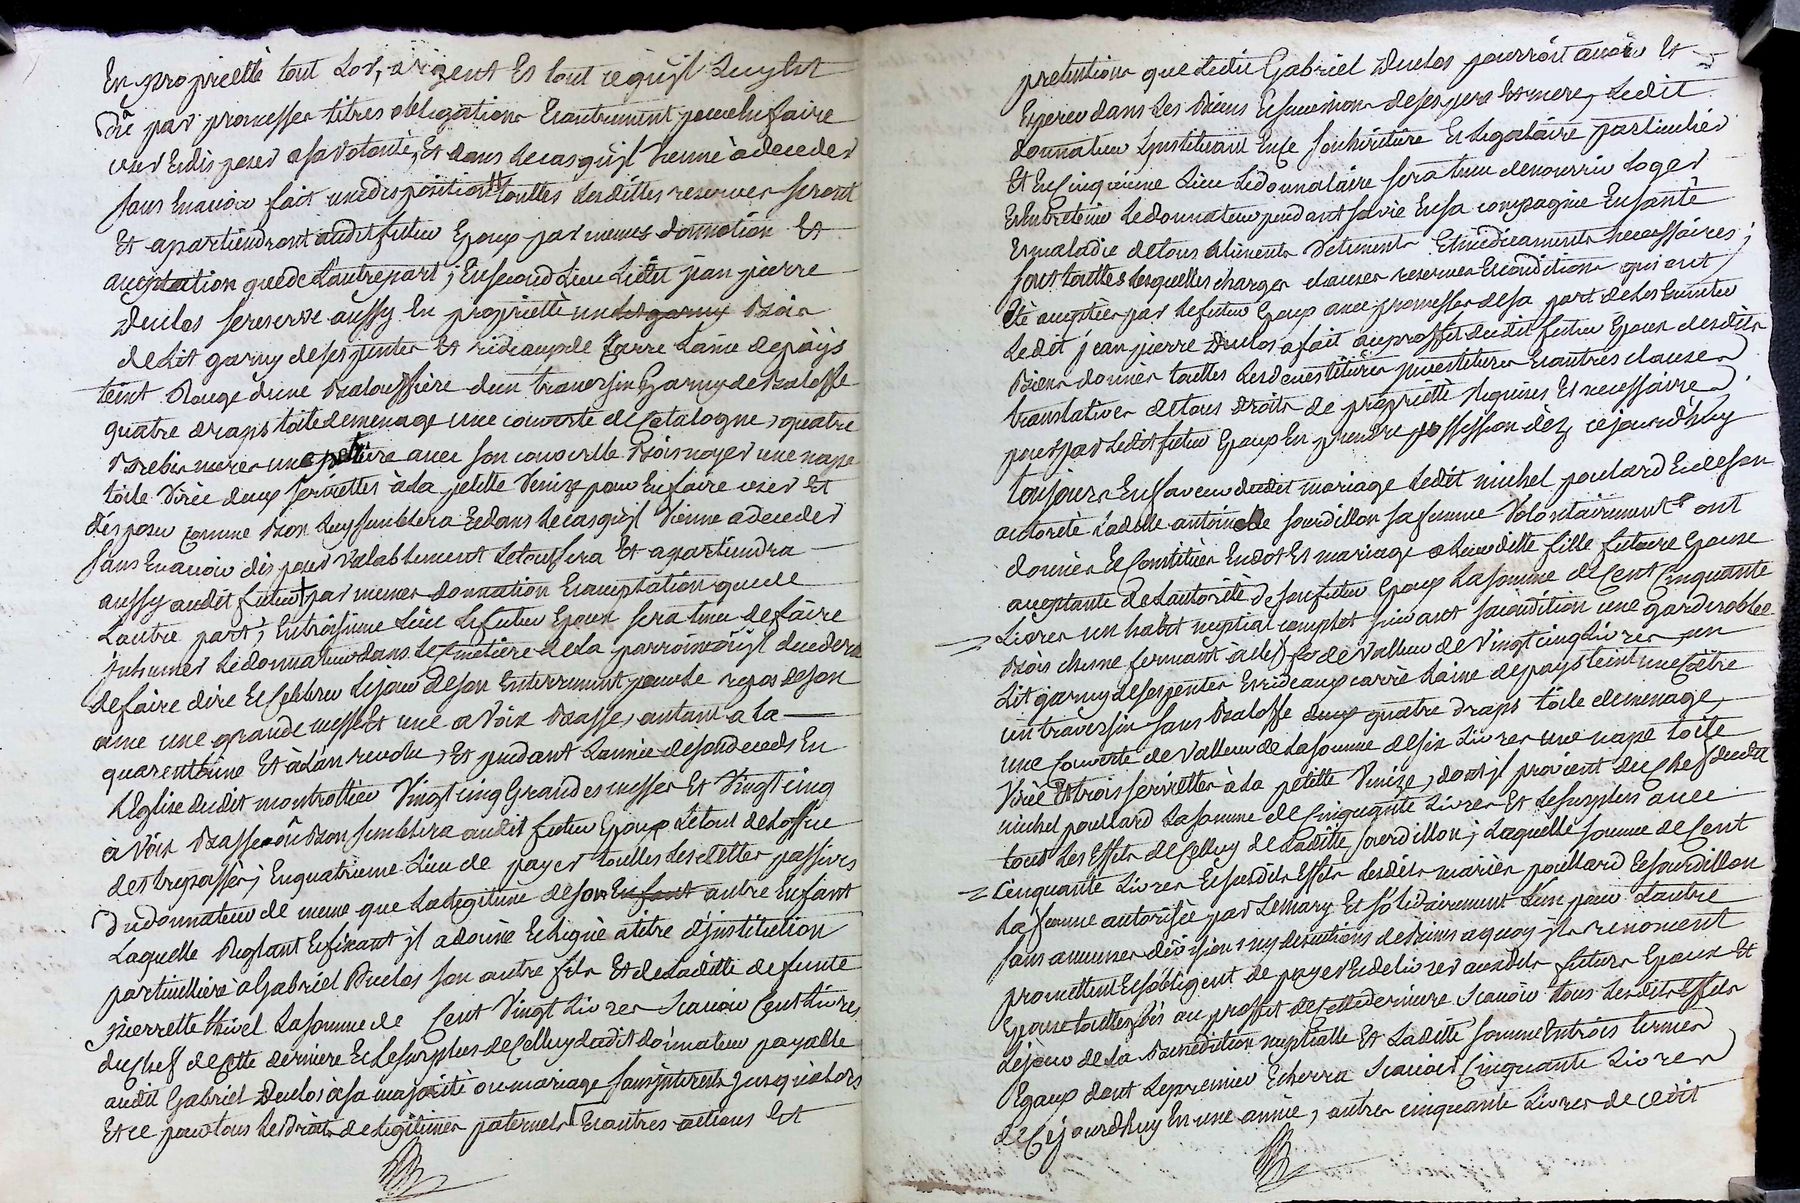 En proprietté tout Lor, argent Et tout ce qu'jl Luy Est
Dû par promesses titres obligations Et autrement pour En faire
user Et disposer asa volonté, Et dans Le cas qu'jl Vienne a deceder
sans En avoir fait une disposition touttes Lesdittes reserves seront
Et apartiendront audit futeur Epoux par memes donnation Et
aceptation que de L'autre part; En second Lieu Ledit jean pierre
Duclos se reserve aussy En proprietté un Bois
de Lit garny de serpentes Et rideaux de Carré Laine de païs
teint Rouge d'une Balouffière d'un traversin Garny de Baloffe
quatre draps toile de menage une couverte de Catalogne, quatre
Brebis meres une petriere avec son couvercle Bois noyer une nape
toile Virée deux serviettes à La petitte Venize pour En faire user Et
disposer comme Bon Luy semblera Et dans Le cas qu'jl Vienne a deceder
sans En avoir disposer Valablement Le tout sera Et apartiendra
aussy audit futeur par memes donnation Et aceptation que de
L'autre part; En troisieme Lieu Le futeur Epoux sera tenu de faire
jnhumer Le donnateur dans Le cimetière de La parroisse où jl decedera
de faire dire Et Celebrer Le jour de son Enterrement pour Le repos de son
ame une grande messe Et une a Voix Basse, autant a La
quarentaine Et à L'an revolu, Et pendant L'année de son deceds En
L'Eglise dudit montrottier Vingt cinq Grandes messes Et Vingt cinq
à Voix Basse où Bon semblera audit futeur Epoux Le tout de Loffice
des trepassés; En quatrieme Lieu de payer touttes Les dettes passives
Du donnateur de meme que La Legitime de son Enfant autre Enfant
Laquelle Reglant Et fixant jl a donné Et Legué à titre d'jnstitution
particulliere a Gabriel Duclos son autre fils Et de Laditte defunte
pierrette La somme de Cent Vingt Livres scavoir Cent Livres
du Chef de Cette derniere Et Le surplus de Celluy dudit donnateur payable
audit Gabriel Duclos à sa majorité ou mariage sans jnterets jusqualors
Et ce pour tous Les droits de Legitimes paternels Et autres actions Et
pretentions que Ledit Gabriel Duclos pourroit avoir Et
Esperer dans Les Biens Et successions de ses pere Et mere, Ledit
donnateur L'jnstituant En Ce son heritiere Et Legataire particulier
Et En Cinquieme Lieu Le donnataire sera tenu de nourrir Loger
Et Entretenir Le donnateur pendant sa vie En sa compagnie En santé
Et maladie de tous alimens Vetements Et medicaments necessaires;
sous touttes Lesquelles charges clauses reserves Et conditions qui ont
Eté aceptées par Le futeur Epoux avec promesses de sa part de Les Executer
Ledit jean pierre Duclos a fait au proffit dudit futeur Epoux desdits
Biens donnés touttes Les devestitures jnvestitures Et autres clauses
translatives de tous droits de proprietté Requises Et necessaires
pour par Ledit futeur Epoux En prendre possession dèz ce jourd'huy
toujours En faveur dudit mariage Ledit michel poulard Et de son
autorité Ladelle antoinette sourdillon sa femme Volontairement ont
donnés Et Constitués En dot Et mariage a Leur ditte fille future Epouse
aceptante de L'autorité de son futeur Epoux La somme de Cent Cinquante
Livres un habit nuptial complet suivant sa condition une garderobbe
Bois chesne fermant a clef de Valleur de Vingt cinq Livres un
Lit garny de serpentes Et rideaux carré Laine de pays teint une Coètre
un traversin sans Baloffe quatre draps toile de menage,
une Couverte de Valleur de La somme de six Livres une nape toile
Virée Et trois serviettes à La petitte Venize, dont jl provient du Chef dudit
michel poullard La somme de Cinquante Livres Et Le surplus avec
tous Les Effets de Celluy de Laditte sourdillon; Laquelle somme de Cent
Cinquante Livres Et susdits Effets Lesdits mariés poullard Et sourdillon
La femme autorisée par Le mary Et solidairement L'un pour L'autre
sans aucunes divisions ny discutions de Biens a quoy jls renoncent
promettent Et s'obligent de payer Et delivrer auxdits futurs Epoux Et
Epouse touttes fois au proffit de Cette derniere scavoir tous Lesdits Effets
Le jour de La Benediction nuptialle Et Laditte somme En trois termes
Egaux dont Le premier Echerra scavoir Cinquante Livres
de Cejourd'huy En une année, autres cinquante Livres de cedit